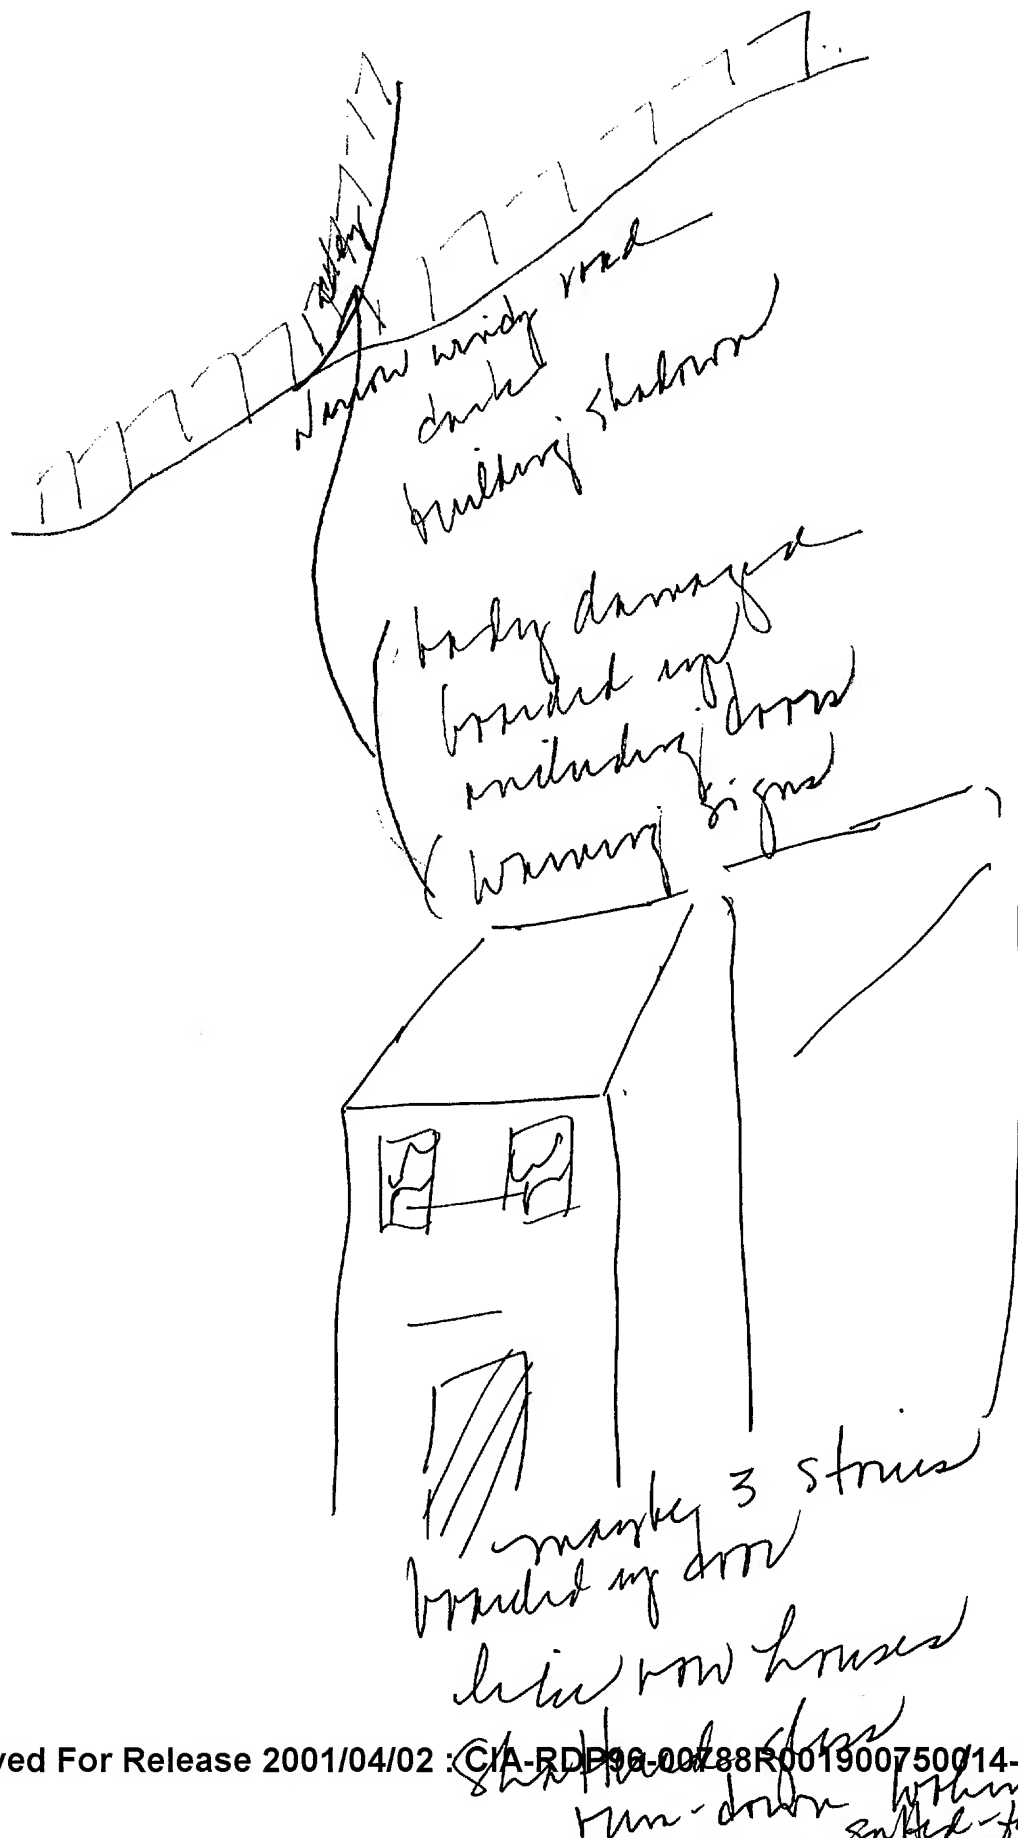 Narrow windy road
dark
building shadows
badly damaged
boarded up
including doors
warning signs
maybe 3 stories
boarded up door
like row houses
shattered glass
yed For Release 2001/04/02 : CIA-RDP96-00788R001900750014-
run-down